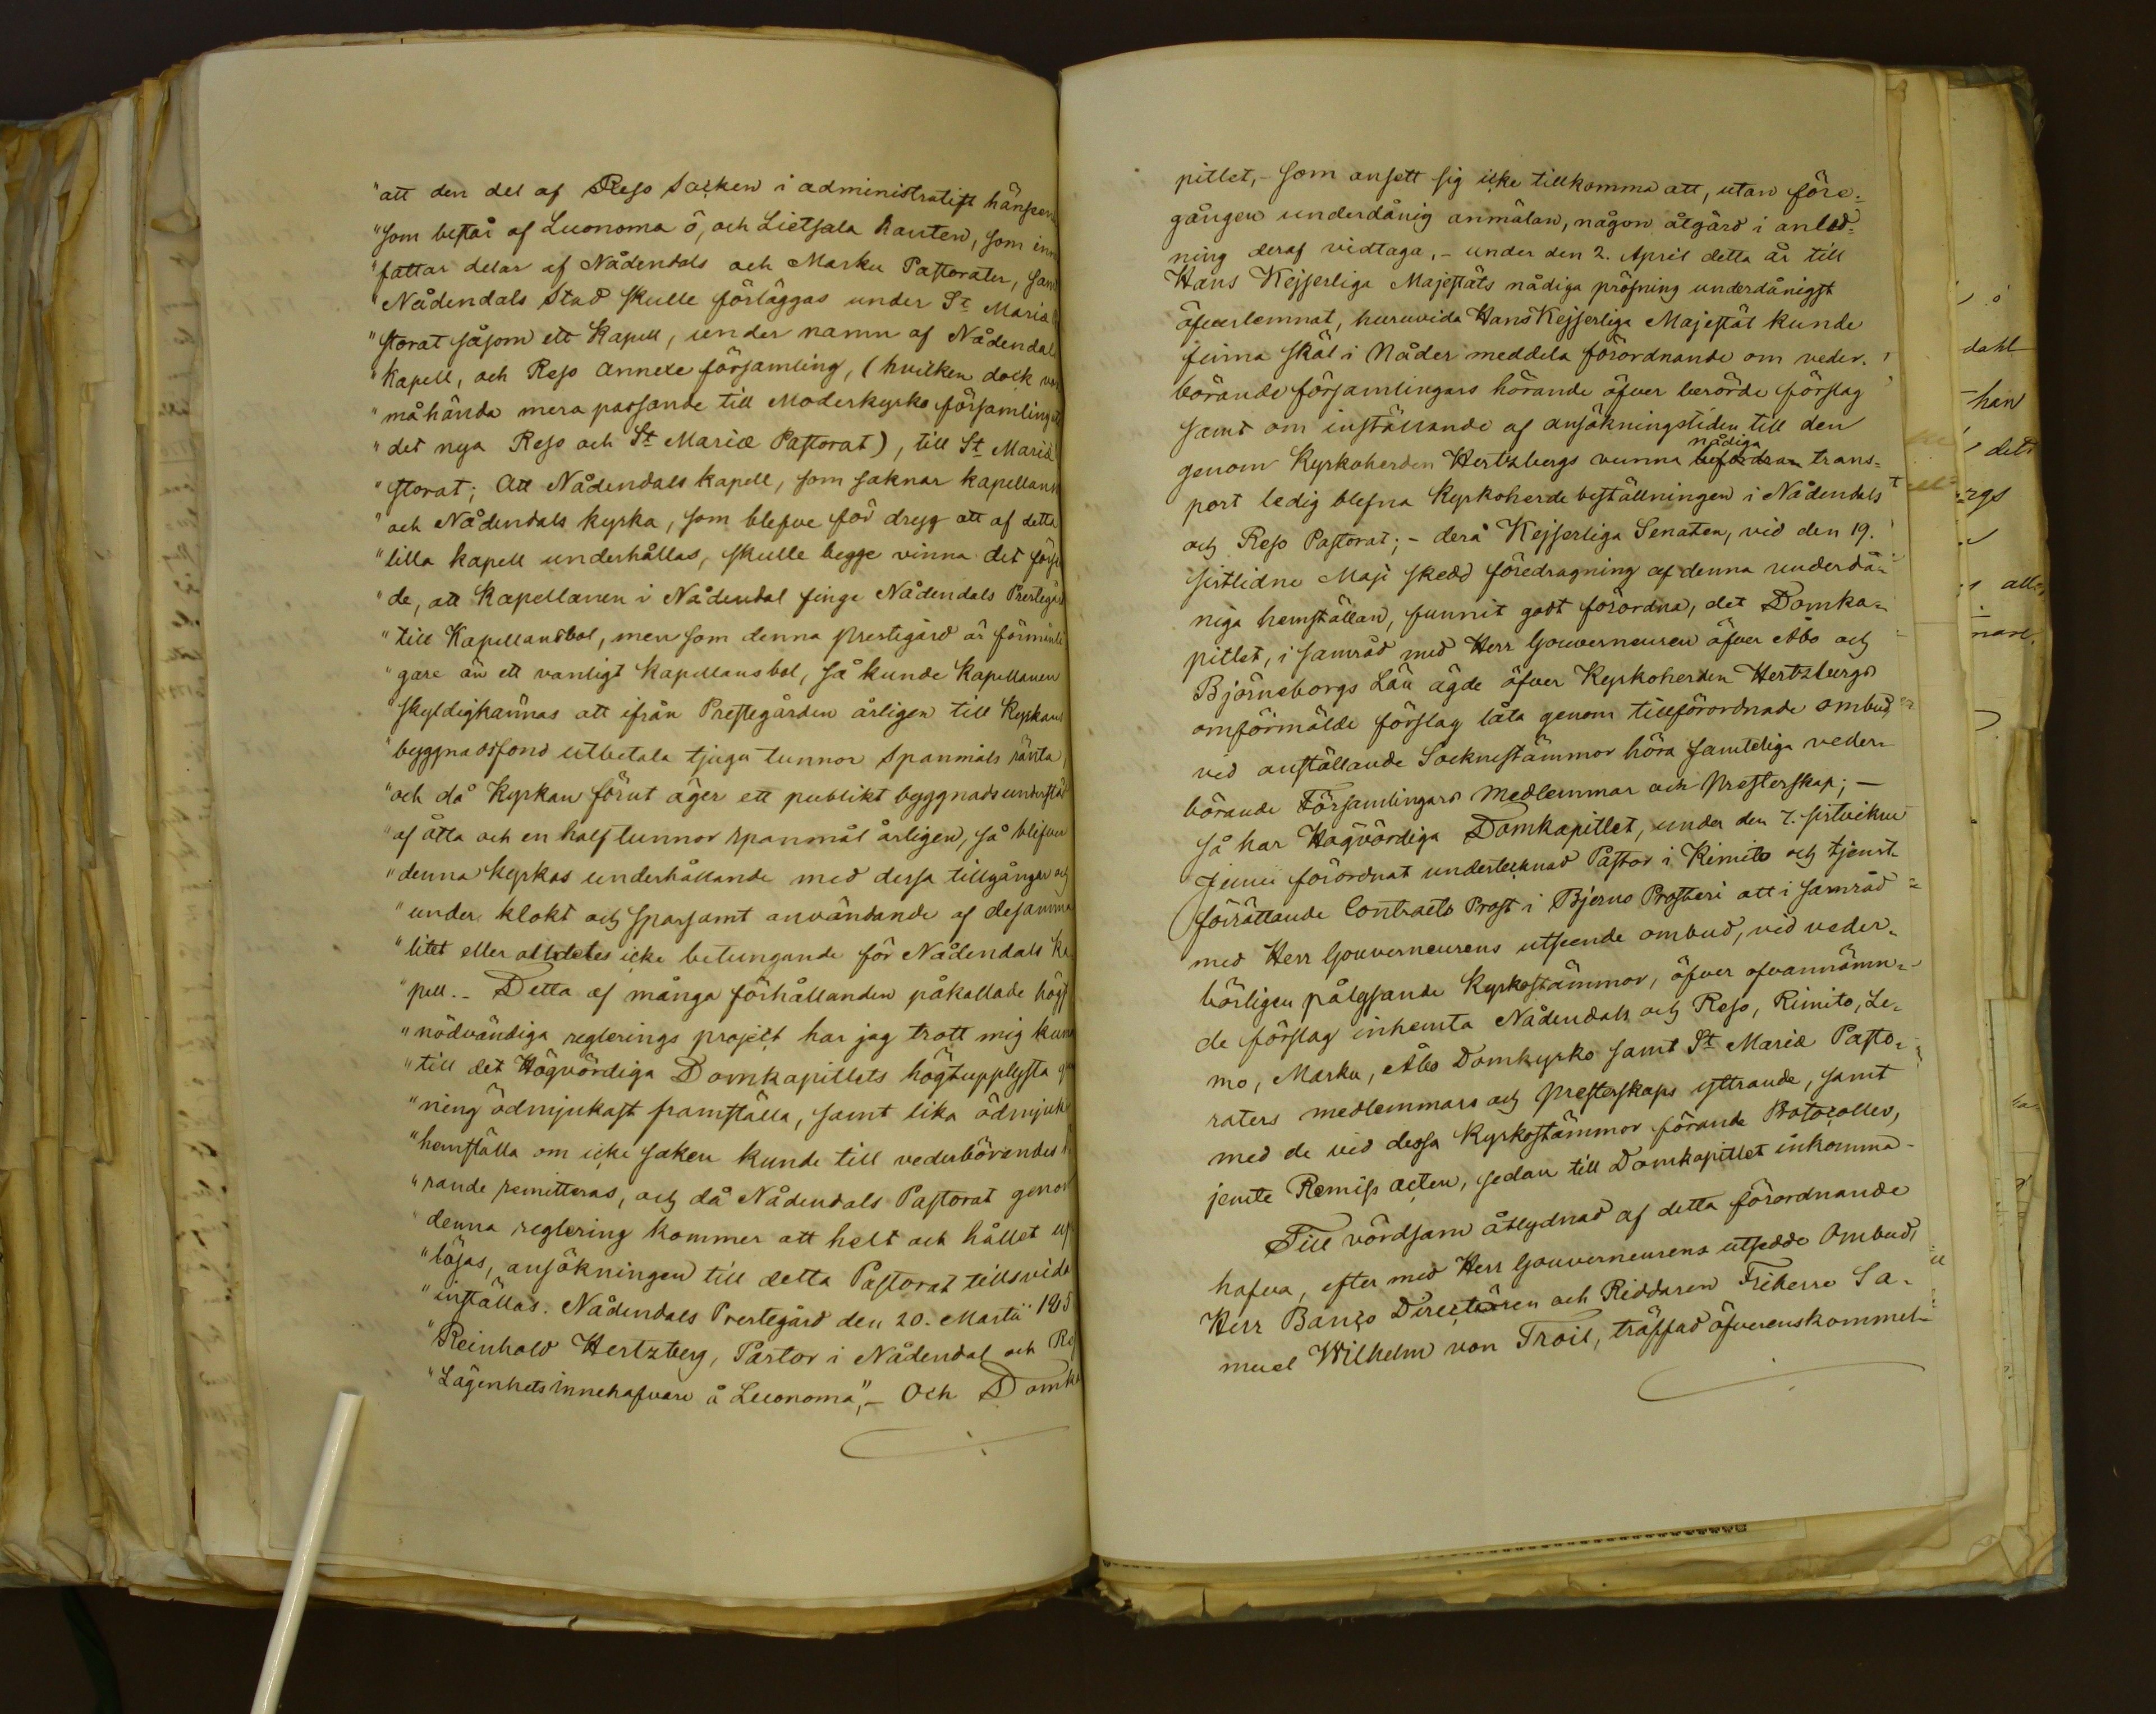 "att den del af Reso Socken i administratift hänseen
"som består af Luonoma ö, och Lietsala kanten, som inn
"fattar delar af Nådendals och Masku Pastorater, sam
"Nådendals Stad skulle förläggas under St Mariæ
"storat såsom ett Kapell, under namn af Nådendals
"Kapell, och Reso annexe församling, (hvilken dock vor
"måhända mera passande till Moderkyrko församling
"det nya Reso och St Mariæ Pastorat), till St Mariæ
"storat; Att Nådendals kapell, som saknar kapellans
"och Nådendals kyrka, som blefve för dryg att af detta
"lilla kapell underhållas, skulle begge vinna det förse
"de, att Kapellanen i Nådendal finge Nådendals Prestegår
"till Kapellansbol, men som denna prestegård är förmånli
"gare än ett vanligt kapellansbol, så kunde Kapellanen
"skyldigkännas att ifrån Prestegården årligen till Kyrkans
"byggnadsfond utbetala tjugu tunnor Spanmåls ränta,
"och då Kyrkan förut äger ett publikt byggnadsunderstöd
"af åtta och en half tunnor spanmål årligen, så blifver
"denna kyrkas underhållande med dessa tillgångar och
"under klokt och sparsamt användande af desamma
"litet eller alldeles icke betungande för Nådendals Ka
"pell. - Detta af många förhållanden påkallade högst
"nödvändiga reglerings project har jag trott mig kun
"till det Högvördiga Domkapitlets högtupplysta
"ning ödmjukast framställa, samt lika ödmjuk
"hemställa om icke saken kunde till vederbörandes
"rande remitteras, och då Nådendals Pastorat genom
denna reglering kommer att helt och hållet up
"lösas, ansökningen till detta Pastorat tillsvida
"inställas. Nådendals Prestegård den 20. Martii 185
"Reinhold Hertzberg, Pastor i Nådendal och Res
"Lägenhetsinnehafvare å Luonoma", - Och Domka
pitlet, - som ansett sig icke tillkomma att, utan före=
gången underdånig anmälan, någon åtgärd i anled=
ning deraf vidtaga, - under den 2. April detta år till
Hans Kejserliga Majestäts nådiga pröfning underdånigst
öfverlemnat, huruvida Hans Kejserliga Majestät kunde
finna skäl i Nåder meddela förordnande om veder=
börande församlingars hörande öfver berörde förslag
samt om inställande af ansökningstiden till den
genom Kyrkoherden Hertzbergs vunna nådiga befordran trans=
port ledig blefna Kyrkoherde beställningen i Nådendals
och Reso Pastorat; - derå Kejserliga Senaten, vid den 19.
sistlidne Maji skedd föredragning af denna underdå=
niga hemställan, funnit godt förordna, det Domka=
pitlet, i samråd med Herr Gouverneuren öfver Åbo och
Björneborgs Län ägde öfver Kyrkoherden Hertzbergs
omförmälde förslag låta genom tillförordnade ombud
vid anställande Sockenstämmor höra samteliga veder=
börande Församlingars medlemmar och Presterskap; -
så har Högvördiga Domkapitlet, under den 7. sistvikne
Junii förordnat undertecknad Pastor i Kimito och tjenst=
förrättande Contracts Prost i Bjerno Prosteri att i samråd
med Herr Gouverneurens utseende ombud, vid veder=
börligen pålysande Kyrkostämmor, öfver ofvannämn=
de förslag inhemta Nådendals och Reso, Rimito, Le=
mo, Masku, Åbo Domkyrko samt St Mariæ Pasto=
raters medlemmars och Presterskaps yttrande, samt
med de vid dessa Kyrkostämmor förande Protocoller,
jemte Remiss acten, sedan till Domkapitlet inkomma -
Till vördsam åtlydnad af detta förordnande
hafva, efter med Herr Gouverneurens utsedde Ombud,
Herr Banco Directören och Riddaren Friherre Sa=
muel Wilhelm von Troil, träffad öfverenskommel=
dahl
han
dets
rgs
alle
nare